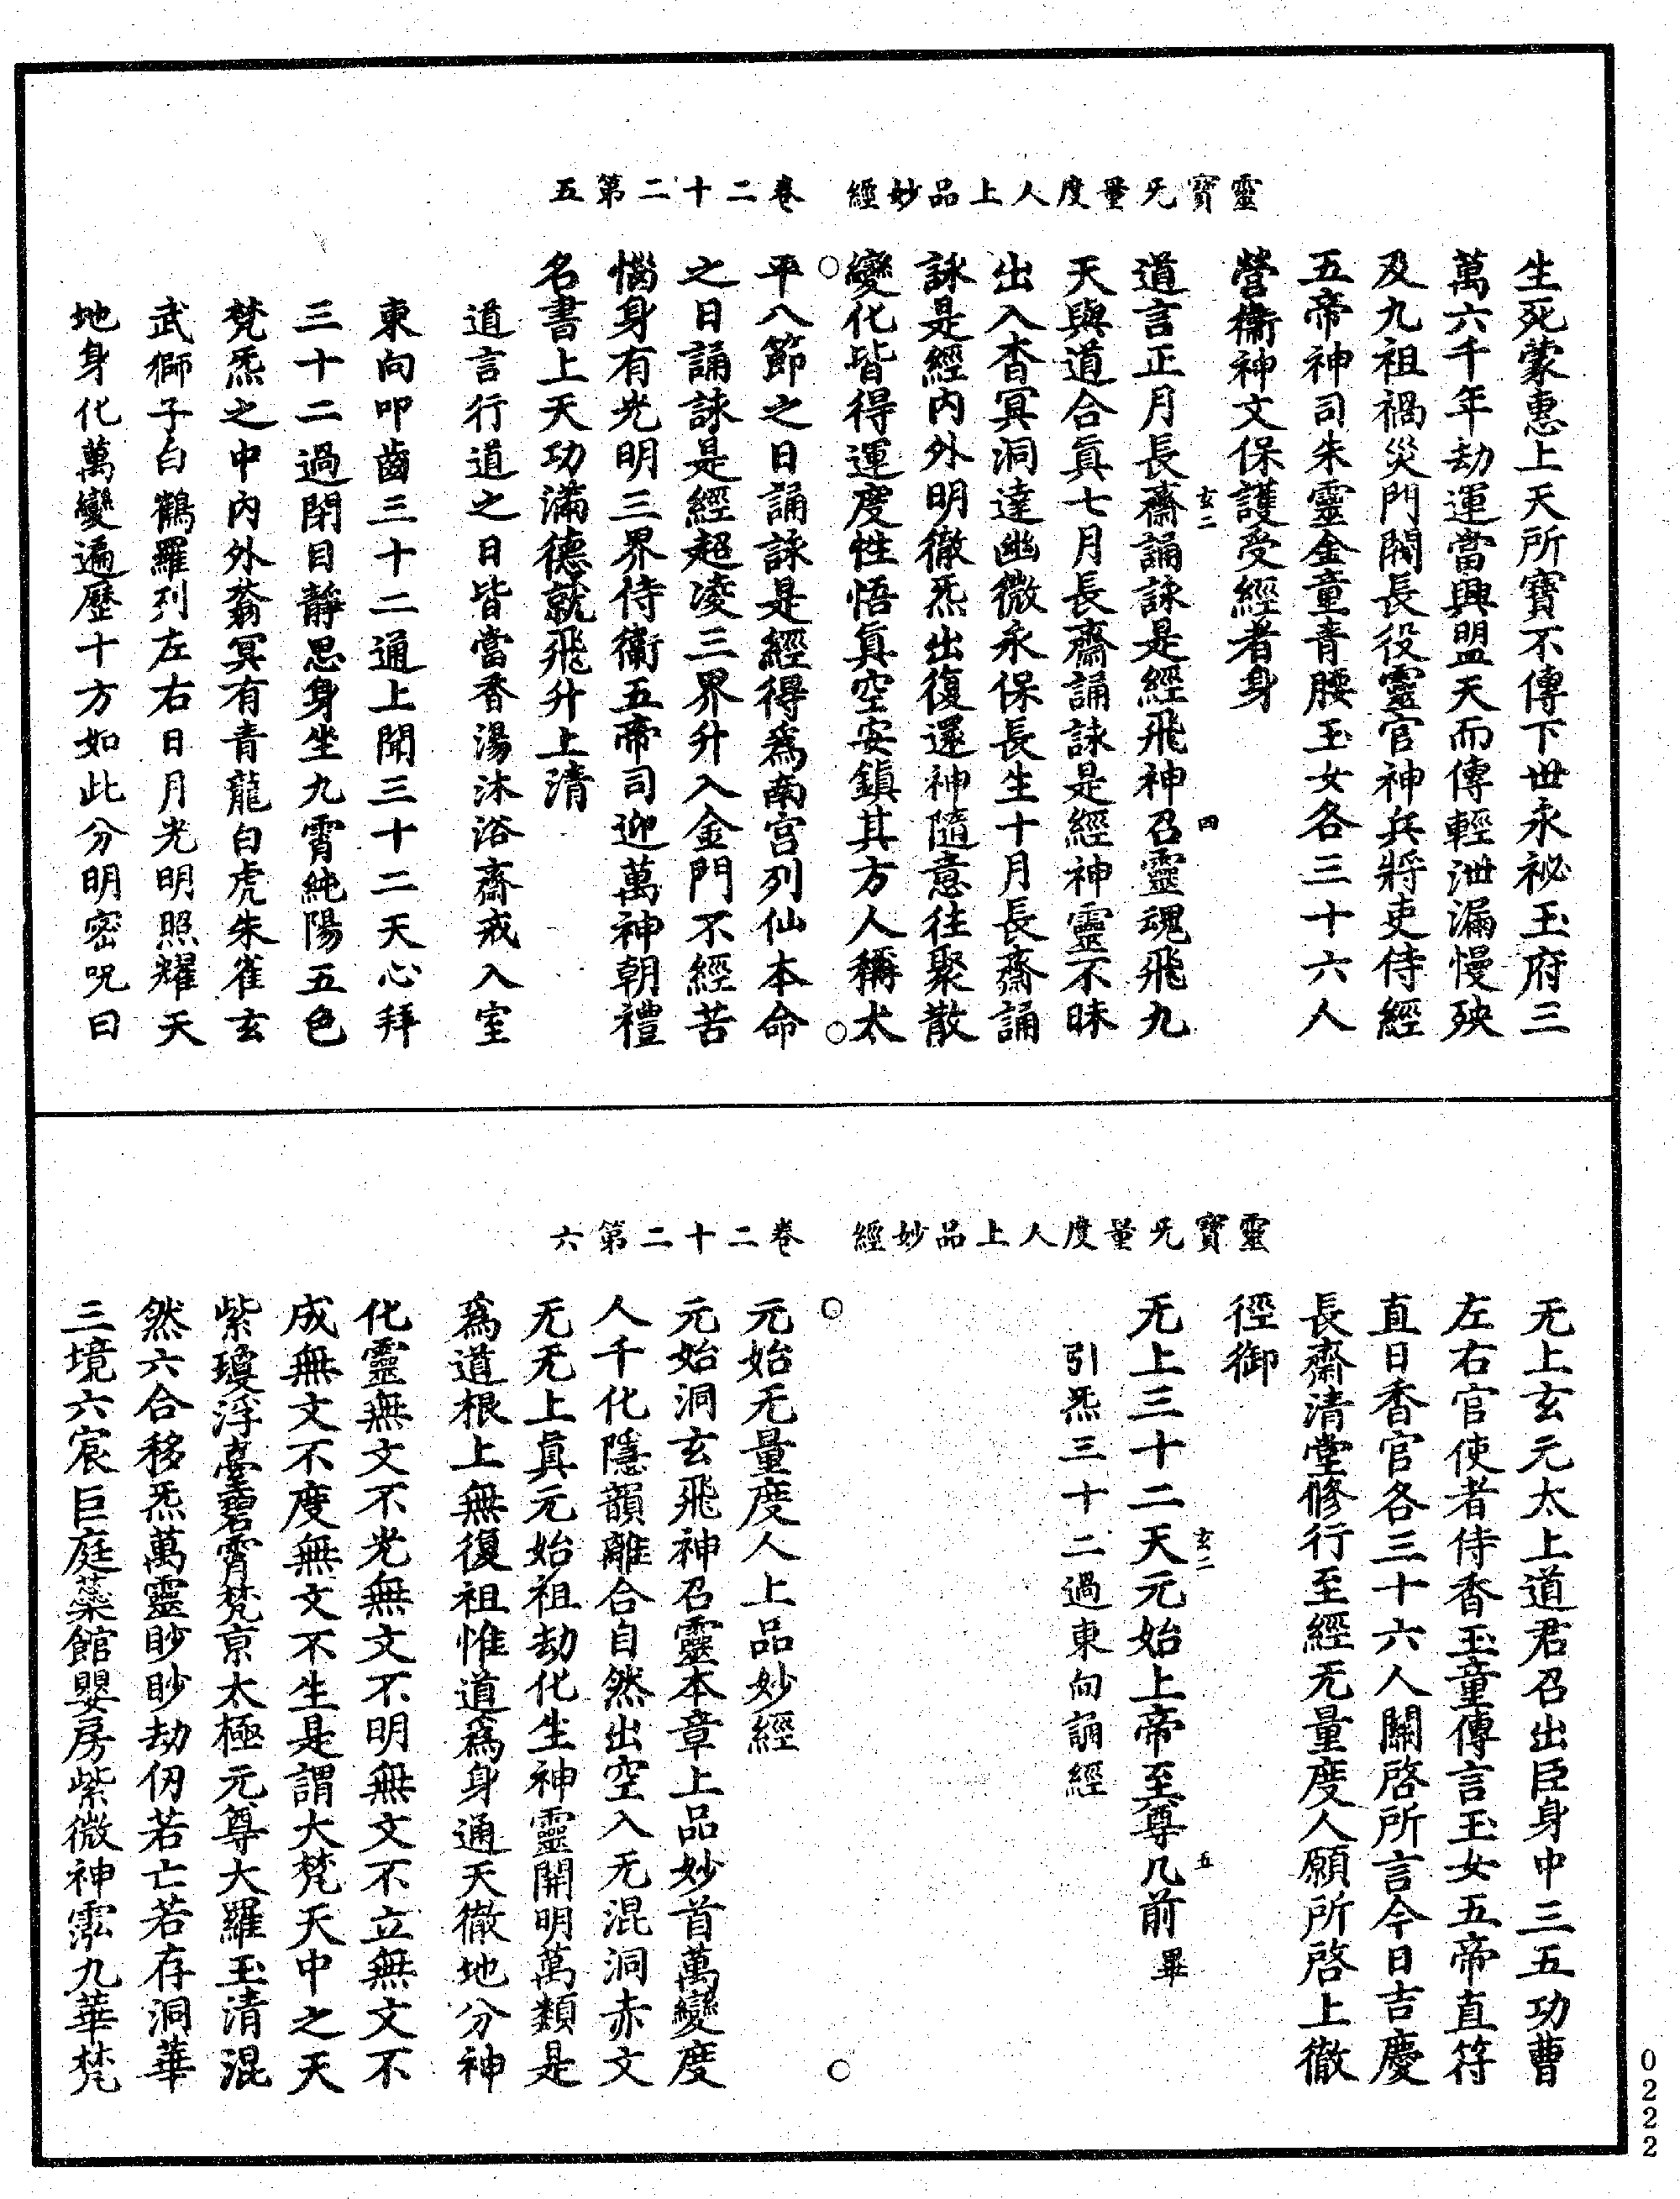 靈寶无量度人上品妙經　卷二十二第五
生死蒙惠上天所寶不傳下世永祕玉府三
萬六千年劫運當興盟天而傳輕泄漏慢殃
及九祖禍災門閥長役靈官神兵將吏侍經
五帝神司朱靈金童青腰玉女各三十六人
營衞神文保護受經者身
玄二　四
道言正月長齋誦詠是經飛神召靈魂飛九
天與道合眞七月長齋誦詠是經神靈不昧
出入杳冥洞達幽微永保長生十月長齋誦
詠是經內外明徹炁出復還神隨意往聚散
變化皆得運度性悟眞空安鎮其方人稱太
平八節之日誦詠是經得爲南宮列仙本命
之日誦詠是經超凌三界升入金門不經苦
惱身有光明三界侍衞五帝司迎萬神朝禮
名書上天功滿德就飛升上清
道言行道之日皆當香湯沐浴齋戒入室
東向叩齒三十二通上聞三十二天心拜
三十二過閉目靜思身坐九霄純陽五色
梵炁之中內外蓊冥有青龍白虎朱雀玄
武獅子白鶴羅列左右日月光明照耀天
地身化萬變遍歷十方如此分明密呪曰
靈寶无量度人上品妙經　卷二十二第六
无上玄元太上道君召出臣身中三五功曹
左右官使者侍香玉童傳言玉女五帝直符
直日香官各三十六人關啓所言今日吉慶
長齋清堂修行至經无量度人願所啓上徹
徑御
无上三十二天元始上帝至尊几前　畢
玄二　五
引炁三十二過東向誦經
元始无量度人上品妙經
元始洞玄飛神召靈本章上品妙首萬變度
人千化隱韻離合自然出空入无混洞赤文
无无上眞元始祖劫化生神靈開明萬類是
爲道根上無復祖惟道爲身通天徹地分神
化靈無文不光無文不明無文不立無文不
成無文不度無文不生是謂大梵天中之天
紫瓊浮臺碧霄梵京太極元尊大羅玉清混
然六合移炁萬靈眇眇劫仞若亡若存洞華
三境六宸巨庭蘂館嬰房紫微神霐九華梵
0222